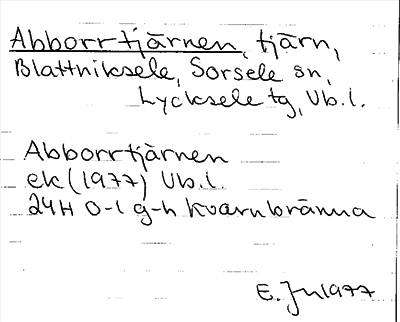 Abborrtjärnen, tjärn,
Blattniksele, Sorsele sn,
Lycksele tg, Vb.l.
Abborrtjärnen
ek (1977) Vb.l.
24H 0-1 g-h Kvarnbränna
E. Ju 1977